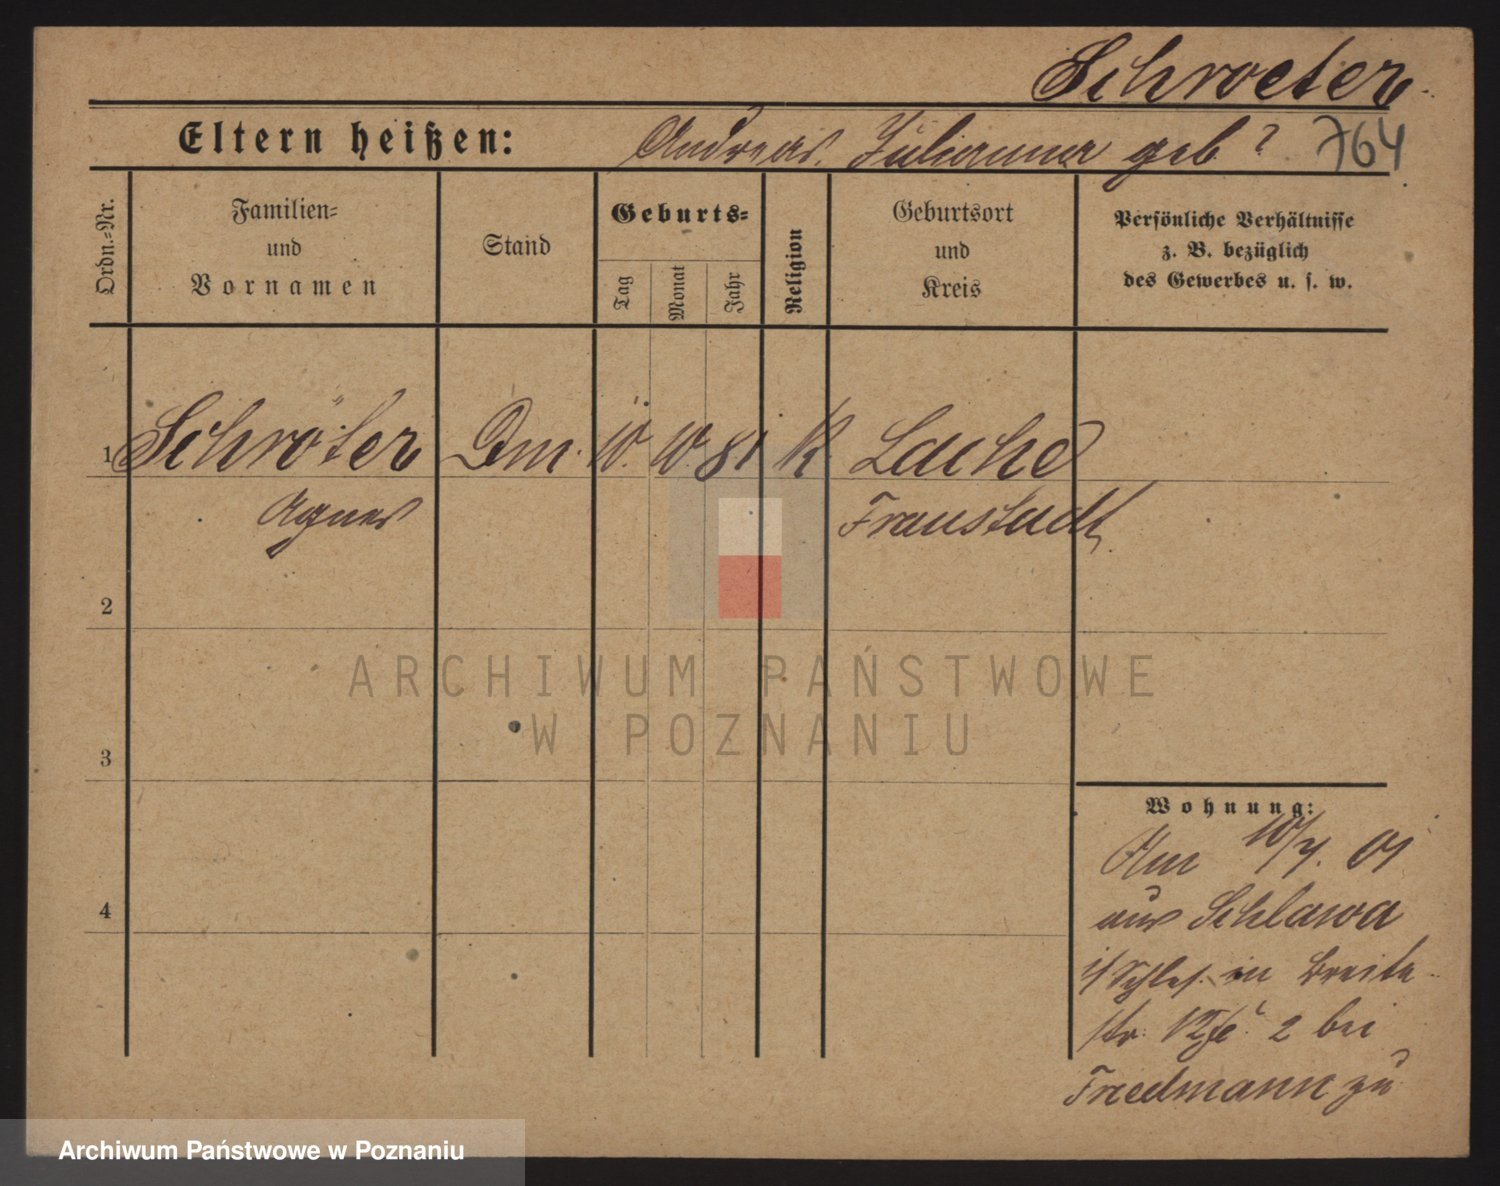 Schroeter
Eltern heißen: Andreas. Julianna geb ? 764
Ordn.-Nr.
Familien-
und
Vornamen
Stand
Geburts-
Tag
Monat
Jahr
Religion
Geburtsort
und
Kreis
Persönliche Verhältnisse
z. B. bezüglich
des Gewerbes u. s. w.
1 Schröter Dm. 10. 10. 81 K. Lache
Agnes Fraustadt
2
ARCHIWUM PAŃSTWOWE
W POZNANIU
3
4
Wohnung:
Am 10/7. 01
aus Schlawa
i/ Schles. in Breite
str. 2 bei
Friedmann zu
Archiwum Państwowe w Poznaniu